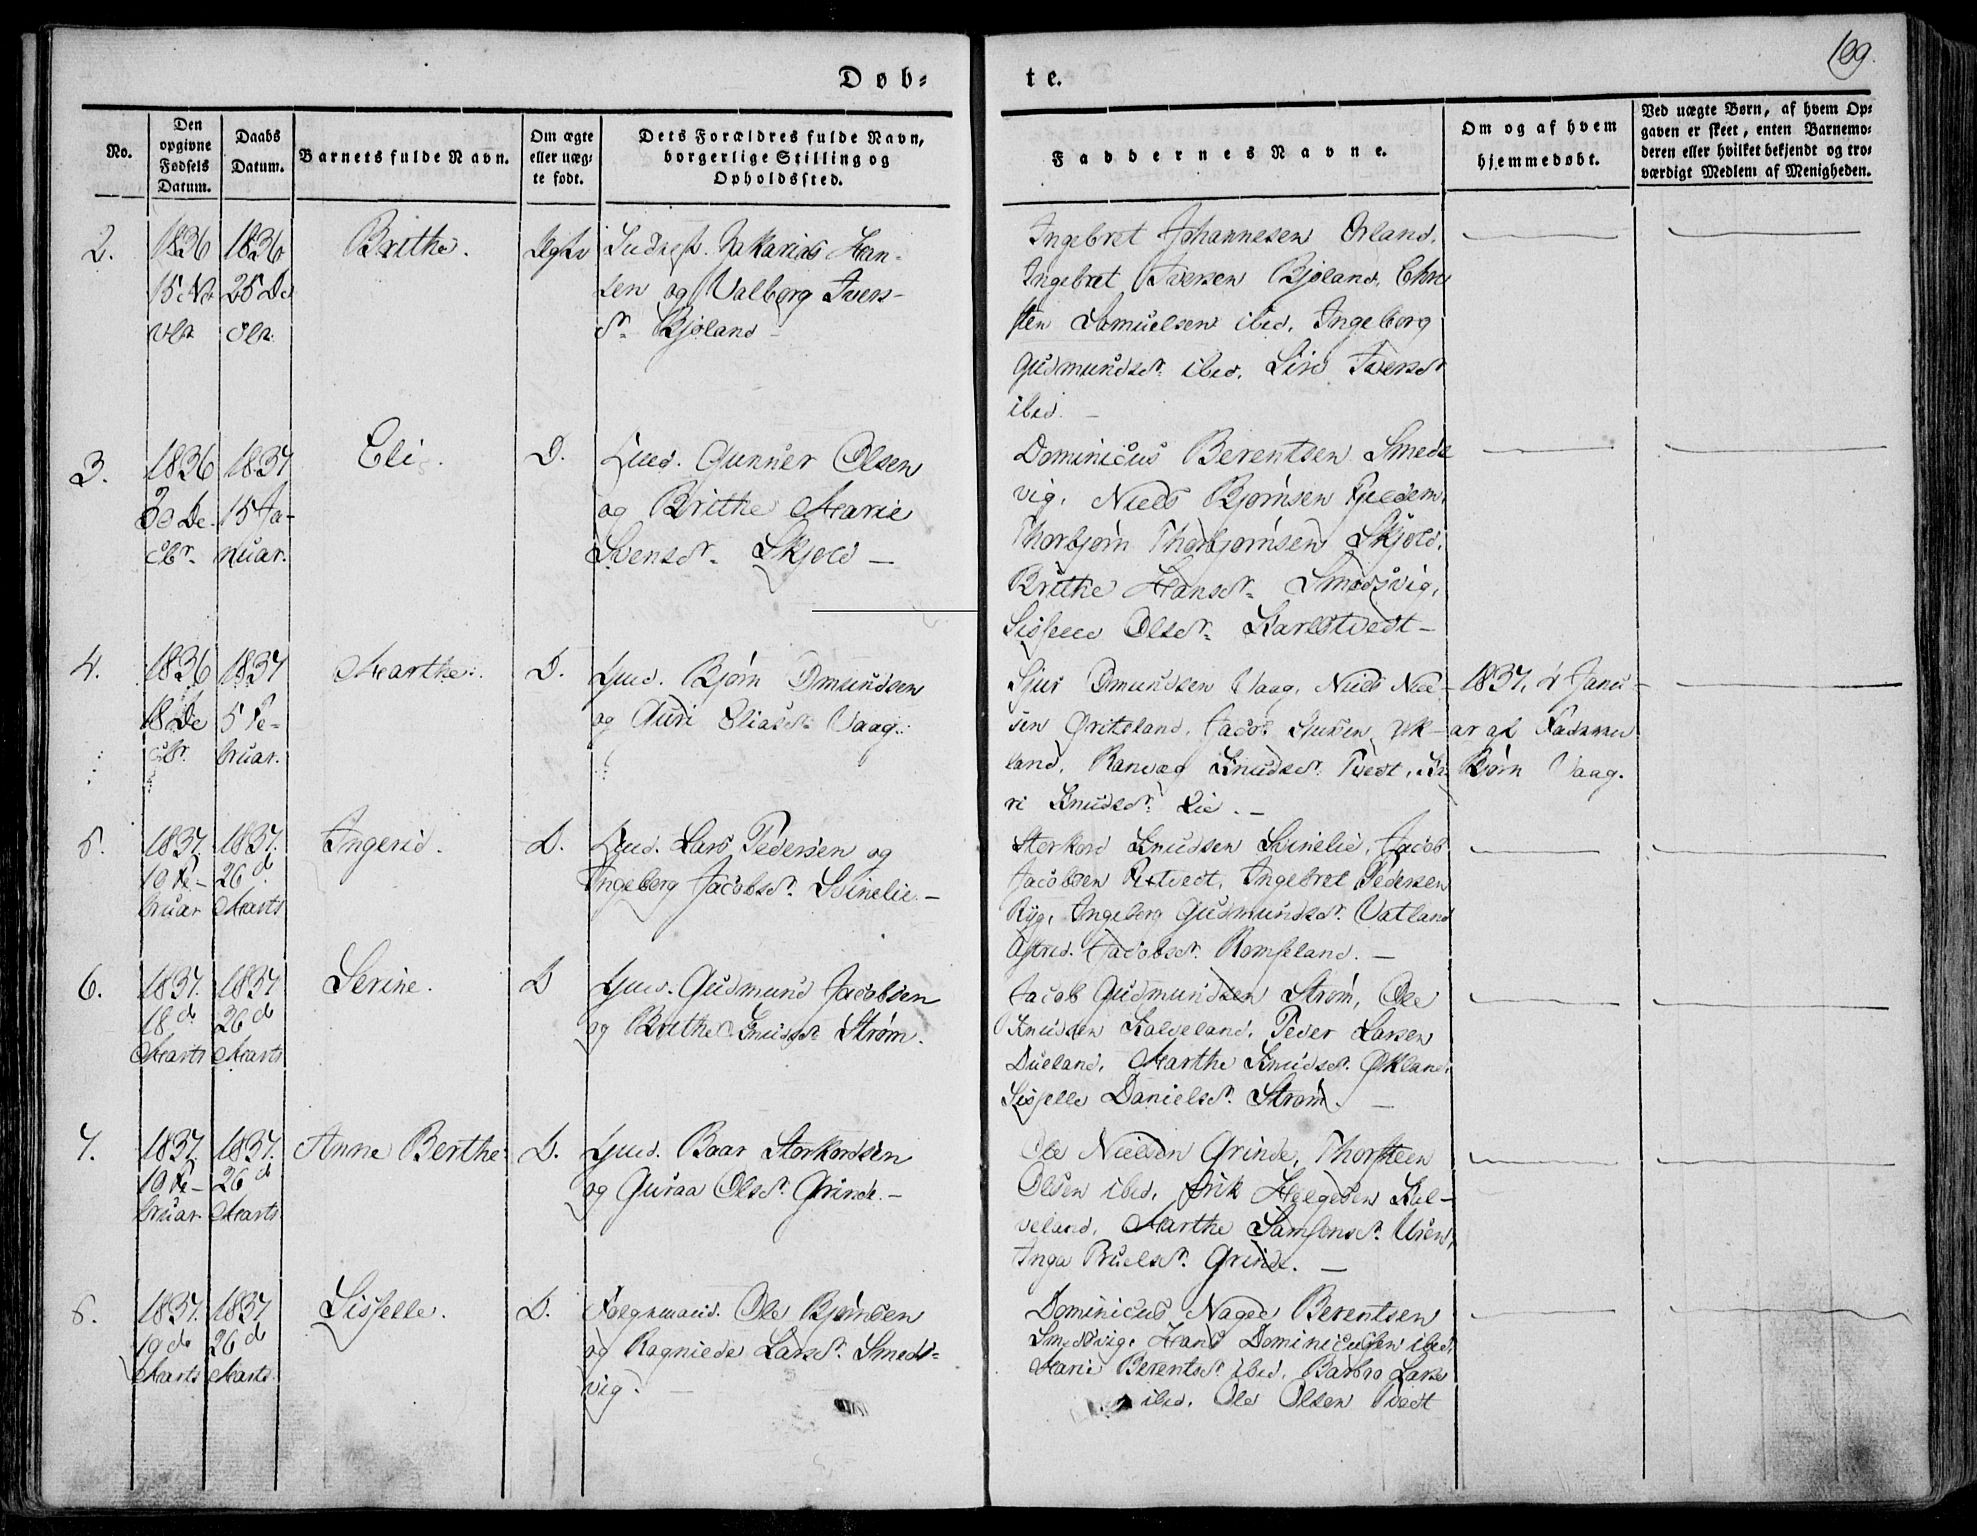 109.
Døb-
te.
No.
Den opgivne Fødsels Datum.
Daabs Datum.
Barnets fulde Navn.
Om ægte eller uægte født.
Dets Forældres fulde Navn, borgerlige Stilling og Opholdssted.
Faddernes Navne.
Om og af hvem hjemmedøbt.
Ved uægte Børn, af hvem Opgaven er skeet, enten Barnemoderen eller hvilket bekjendt og troværdigt Medlem af Menigheden.
2.
1836
15 No
vbr
1836
25 De
cbr.
Brithe.
Ægte
Zakarias Han-
sen og Valborg Ivers-
dr. Bjoland -
Ingebret Johannesen Orland.
Ingebret Iversen Bjoland, Chri
sten Samuelsen ibid. Ingeborg
Gudmundsdr. ibid. Siri Iversdr
ibid. -
3.
1836
30 De-
cbr.
1837
15 Ja-
nuar.
Eli.
D.
Gunner Olsen
og Brithe Marie
Svensdr. Skjold -
Dominicus Berentsen Smeds
vig. Niels Bjørnsen
Thorbjørn Thorbjørnsen Skjold.
Brithe Hansdr. Smedsvig.
Sisselle Olsdr.
4.
1836
18 De
cbr.
1837
5 Fe-
bruar.
Marthe.
D.
Bjørn Omundsen
og Guri Eliasdr. Vaag.
Sjur Omundsen Vaag. Niels Niel-
sen Jacob Øk-
land. Ranvag Knudsdr. Tvedt.
ri Knudsdr. Lie. -
1837. d Janu-
ar af Faderen
Bjørn Vaag.
5.
1837.
10 Fe-
bruar
1837.
26 d
Marts
Ingerid.
D.
Lars Pedersen og
Ingeborg Jacobsdr. Svinelie. -
Storkord Knudsen Svinelie. Jacob
Jacobsen Ingebret Pedersen
Ryg. Ingeborg Gudmundsdr. Vatland
Astrid Jacobsdr. Romseland. -
6.
1837.
18 d
Marts
1837
26 d
Marts
Serine.
D
Gudmund Jacobsen
og Brithe Knudsdr Strøm.
Jacob Gudmundsen Strøm, Ole
Knudsen Kalveland. Peder Larsen
Dueland. Marthe Knudsdr. Økland.
Sisselle Danielsdr. Strøm. -
7.
1837.
10 Fe-
bruar
1837.
26 d
Marts
Anne Berthe
D.
Baar Storkordsen
og Guraa Olsdr. Grinde. -
Ole Nielsen Grinde, Thorsteen
Olsen ibid. Erik Helgesen Kal-
veland. Marthe Samsonsdr.
Inga Grinde. -
8.
1837.
19 d
Marts
1837
26 d
Marts
Sisselle.
D.
Ole Bjørnsen
og Ragniede Larsdr. Smeds-
vig. -
Dominicus Nagel Berentsen
Smedsvig. Hans Dominicusen ibid.
Marie Berentsdr. ibid. Barbro Lars
ibid. Ole Olsen Tvedt